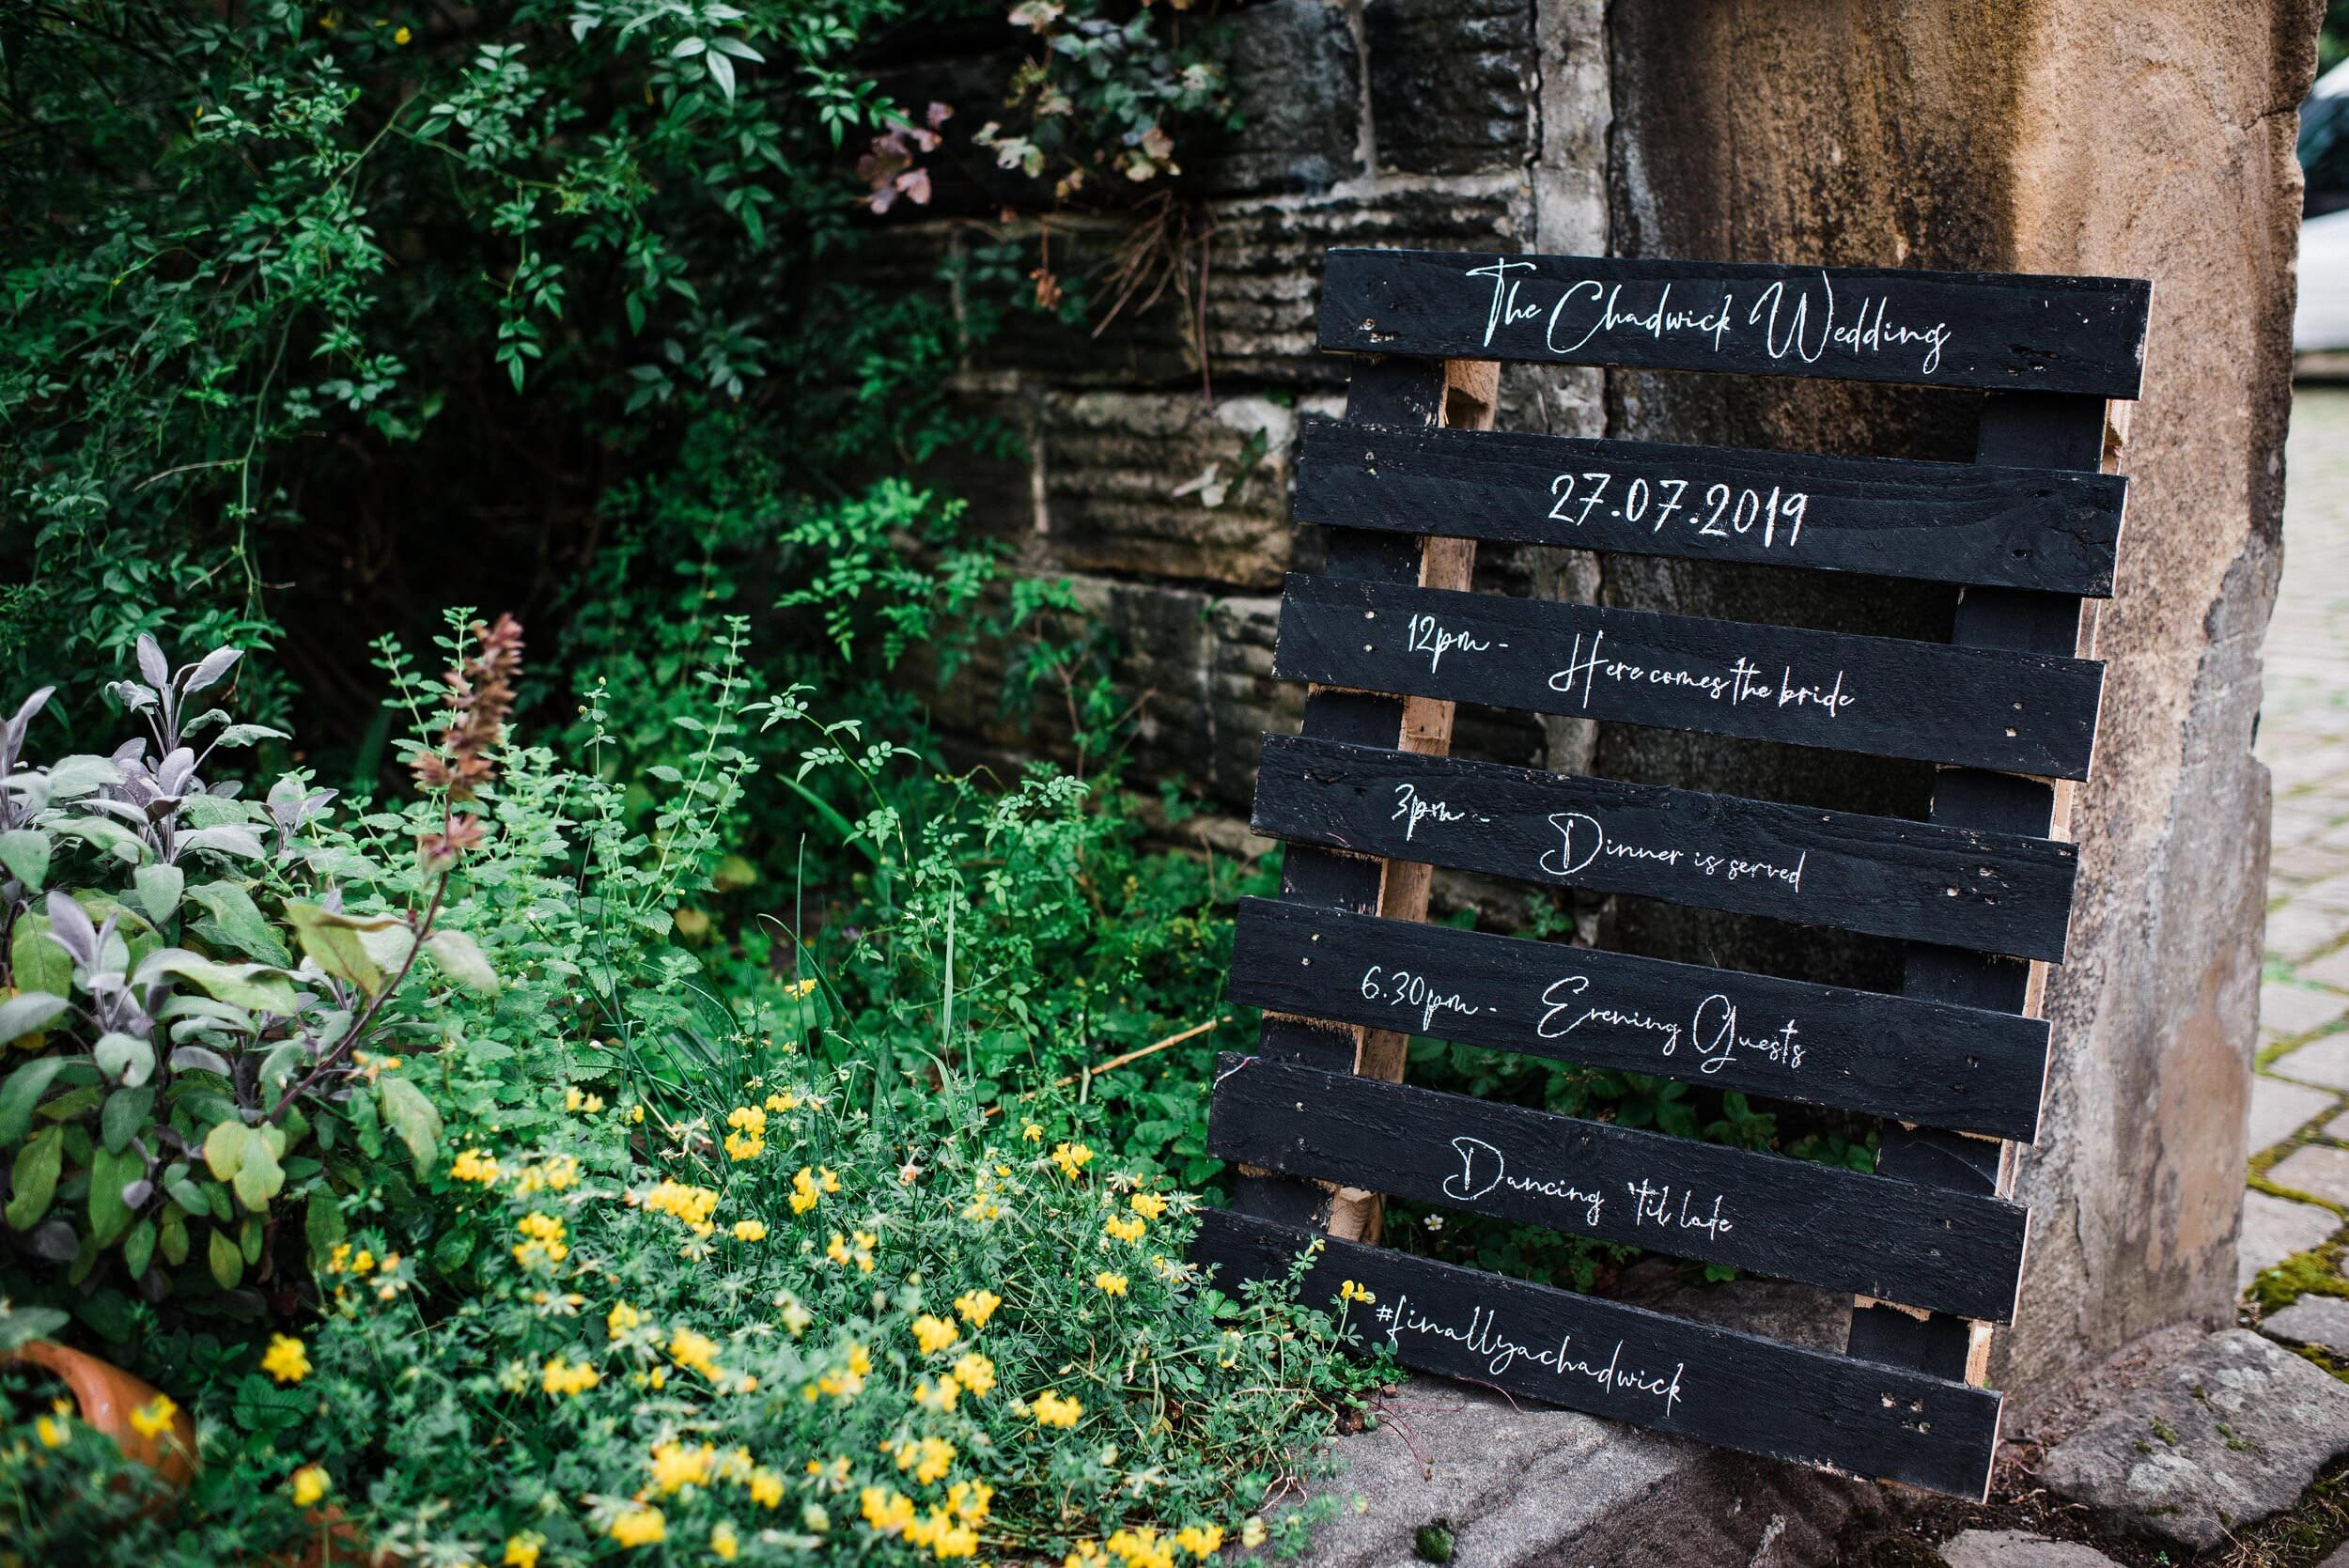 The Chadwick Wedding
27.07.2019
12pm - Here comes the bride
3pm - Dinner is served
6.30pm - Evening Guests
Dancing 'til late
#finallyachadwick